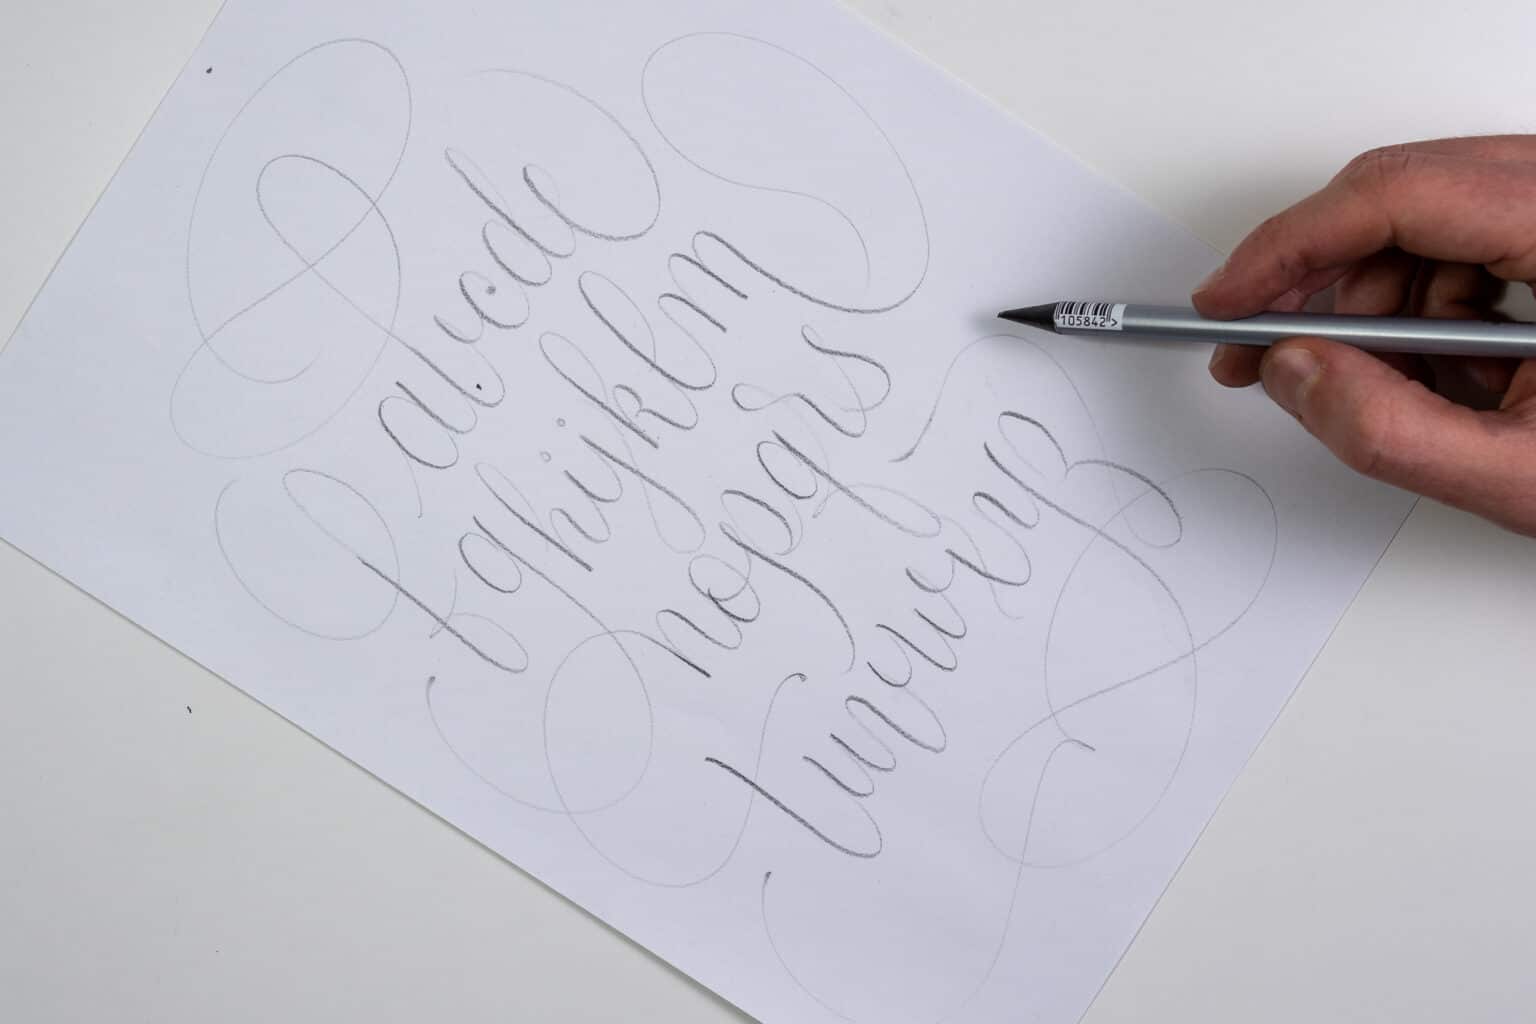 abcde
fghijklm
nopqrs
tuvwxyz
105842 >